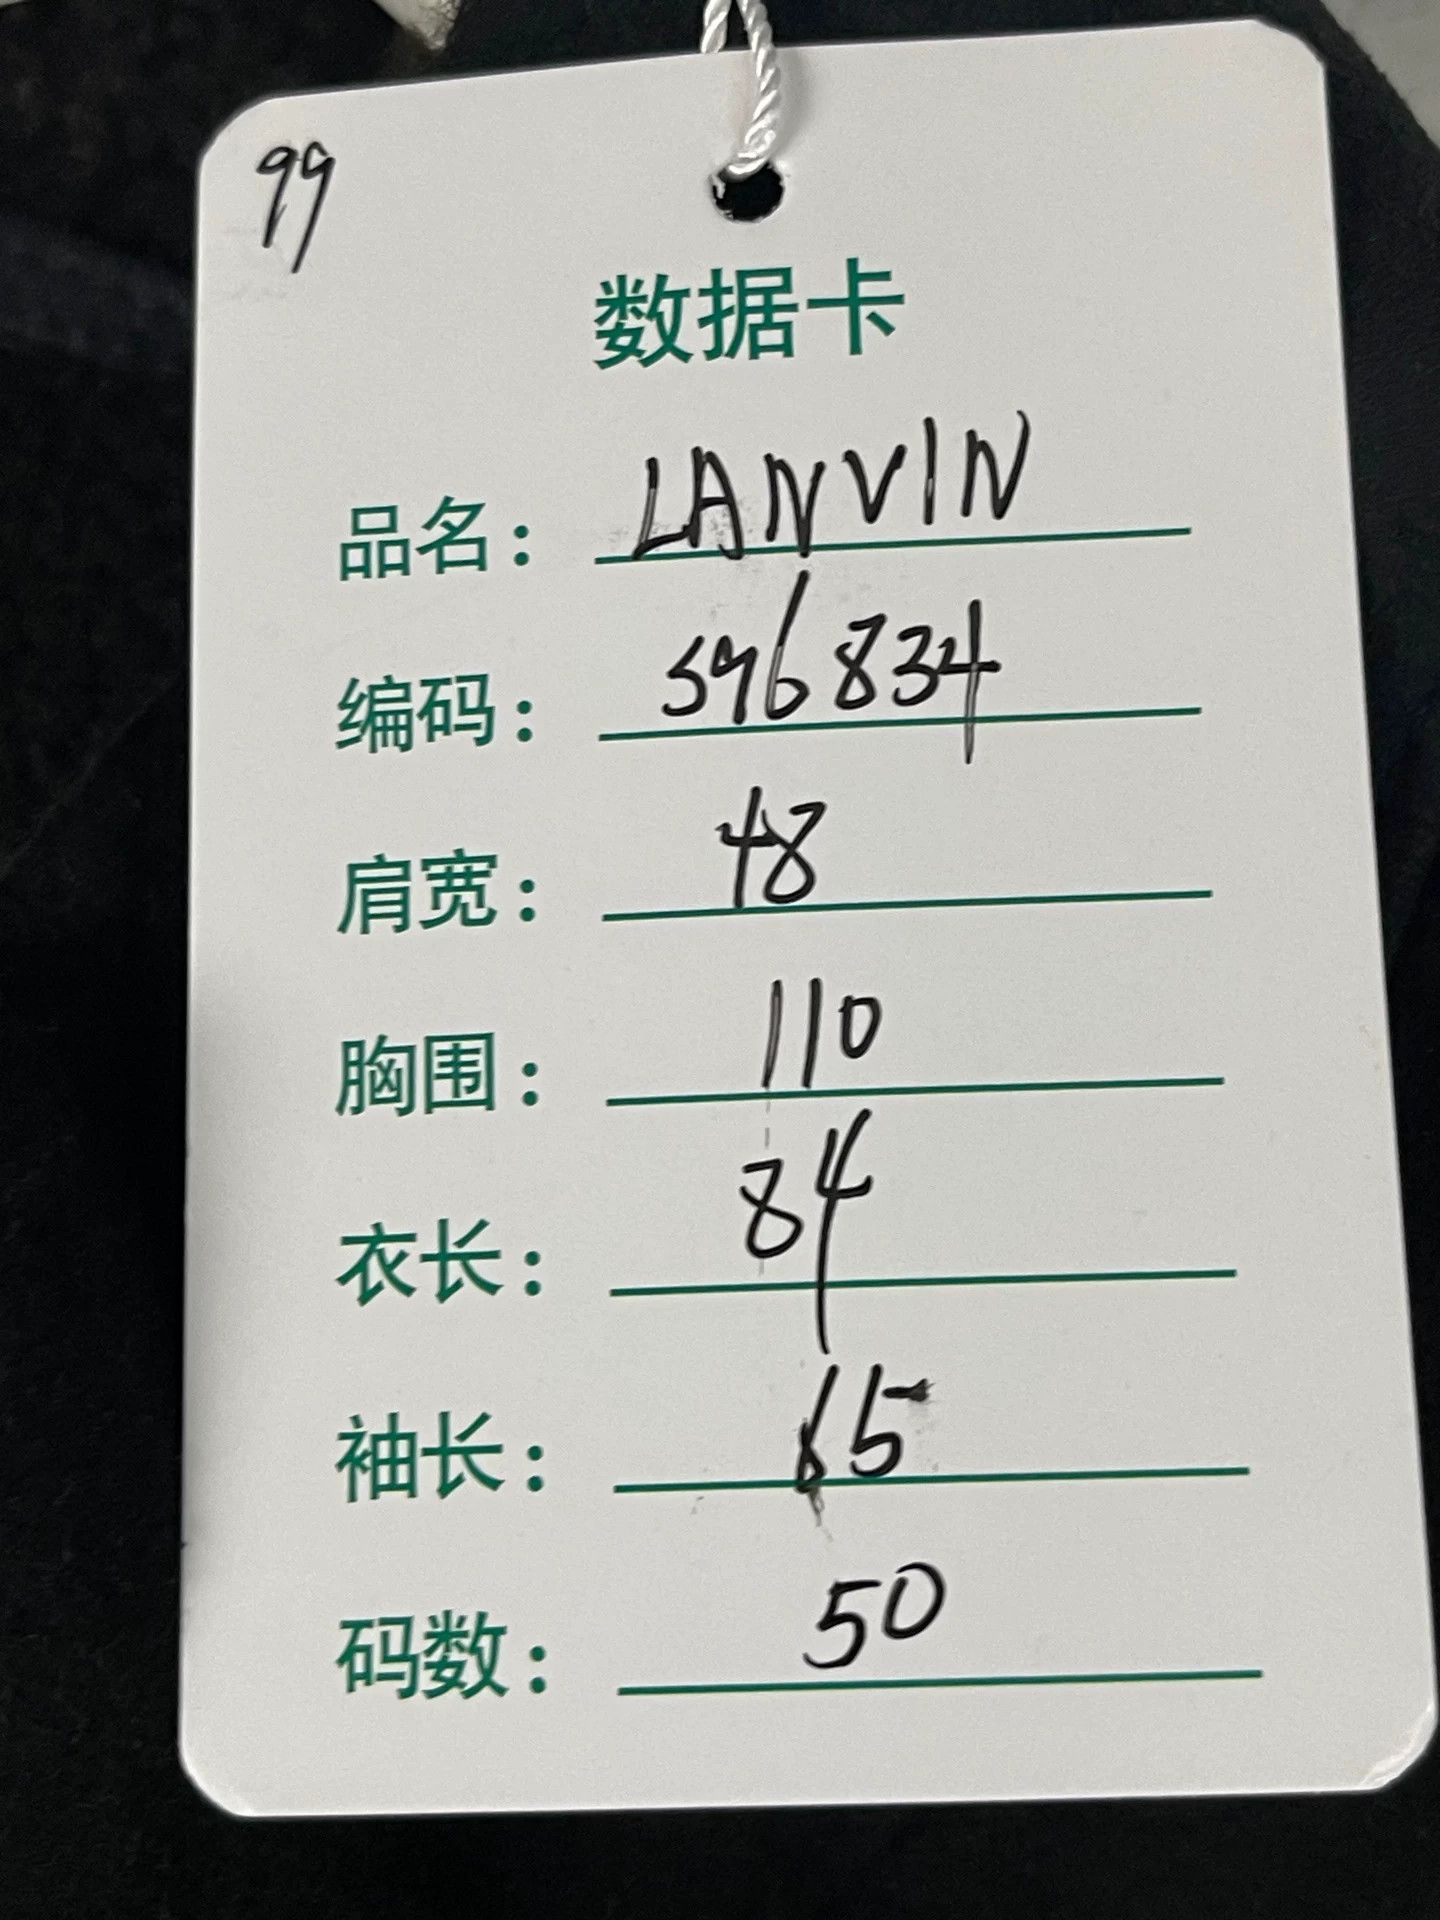 99
数据卡
品名：LANVIN
编码：596834
肩宽：48
胸围：110
衣长：84
袖长：65
码数：50